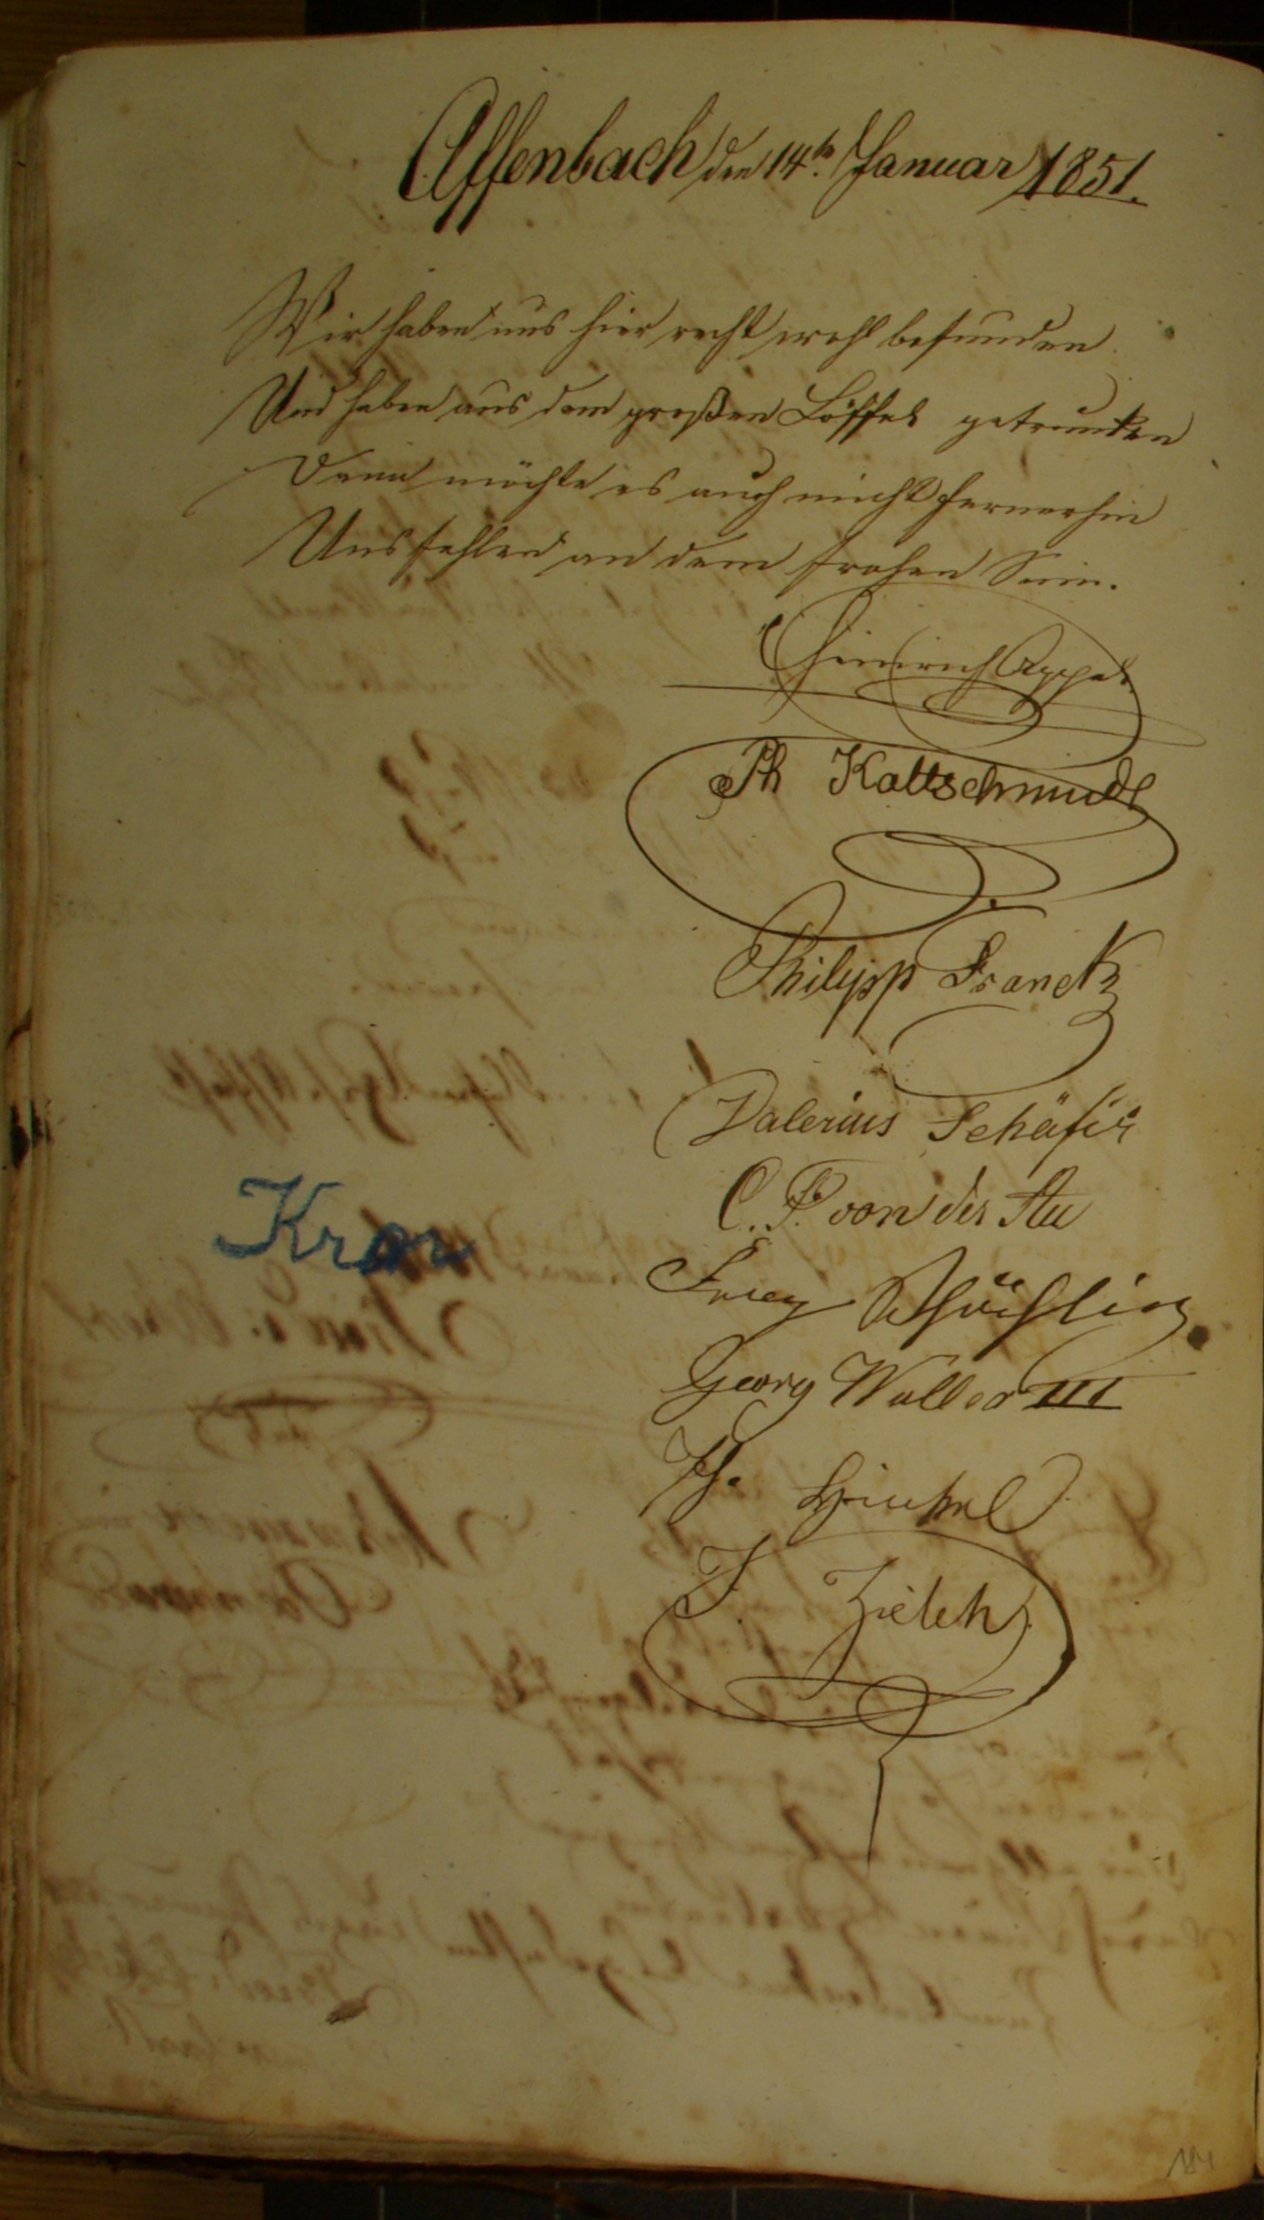 Offenbach den 14ten Januar 1851.
Wir haben uns hier recht wohl befunden
Und haben aus dem großen Löffel getrunken
Denn möchte es auch nicht fernerhin
Uns fehlen an dem frohen Sinn.
Heinrich Appel
Ph Kaltschmidt
Philipp Franck
Valerius Schäfer
C. F. von der Au
Georg Walter III
Ph. Hinkel
J. Zilch
184